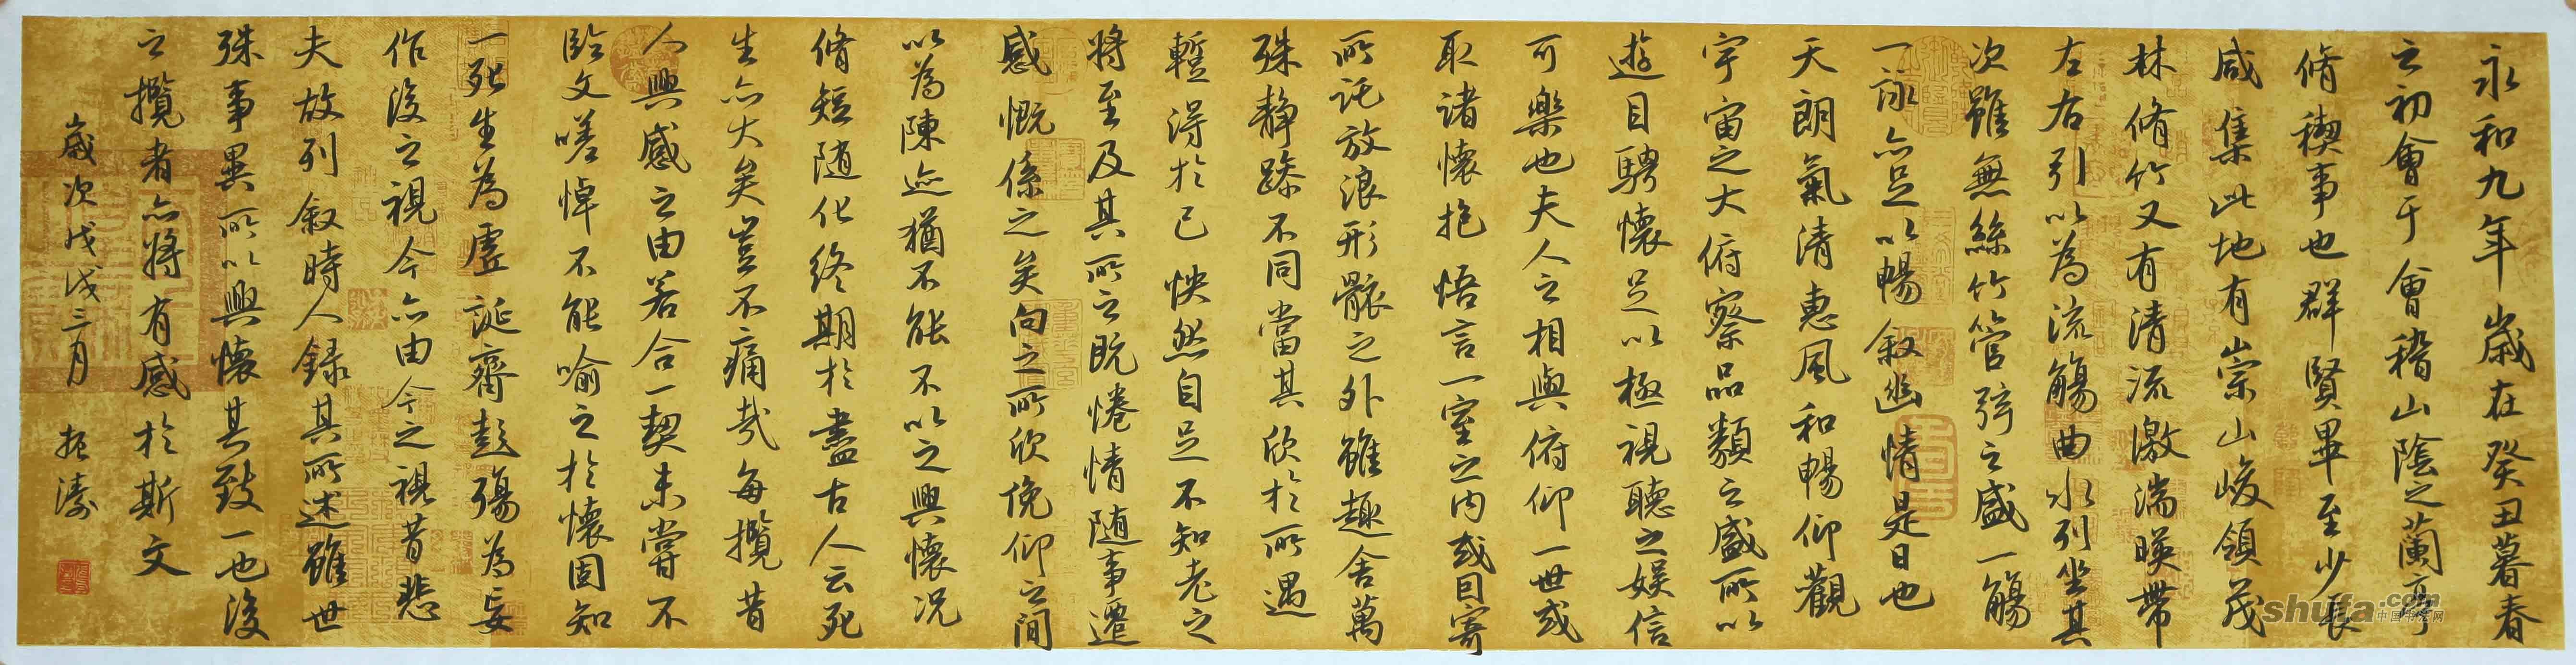 永和九年歲在癸丑暮春
之初會于會稽山陰之蘭亭
脩稧事也群賢畢至少長
咸集此地有崇山峻領茂
林脩竹又有清流激湍暎帶
左右引以為流觴曲水列坐其
次雖無絲竹管弦之盛一觴
一詠亦足以暢叙幽情是日也
天朗氣清惠風和暢仰觀
宇宙之大俯察品類之盛所以
遊目騁懷足以極視聽之娛信
可樂也夫人之相與俯仰一世或
取諸懷抱悟言一室之内或因寄
所託放浪形骸之外雖趣舍萬
殊靜躁不同當其欣於所遇
蹔得於己怏然自足不知老之
將至及其所之既惓情随事遷
感慨係之矣向之所欣俛仰之間
以為陳迹猶不能不以之興懷况
脩短随化終期於盡古人云死
生亦大矣豈不痛哉每攬昔
人興感之由若合一契未嘗不
臨文嗟悼不能喻之於懷固知
一死生為虛誕齊彭殤為妄
作後之視今亦由今之視昔悲
夫故列叙時人錄其所述雖世
殊事異所以興懷其致一也後
之攬者亦將有感於斯文
歲次戊戌三月 振濤
shufa.com
中国书法网